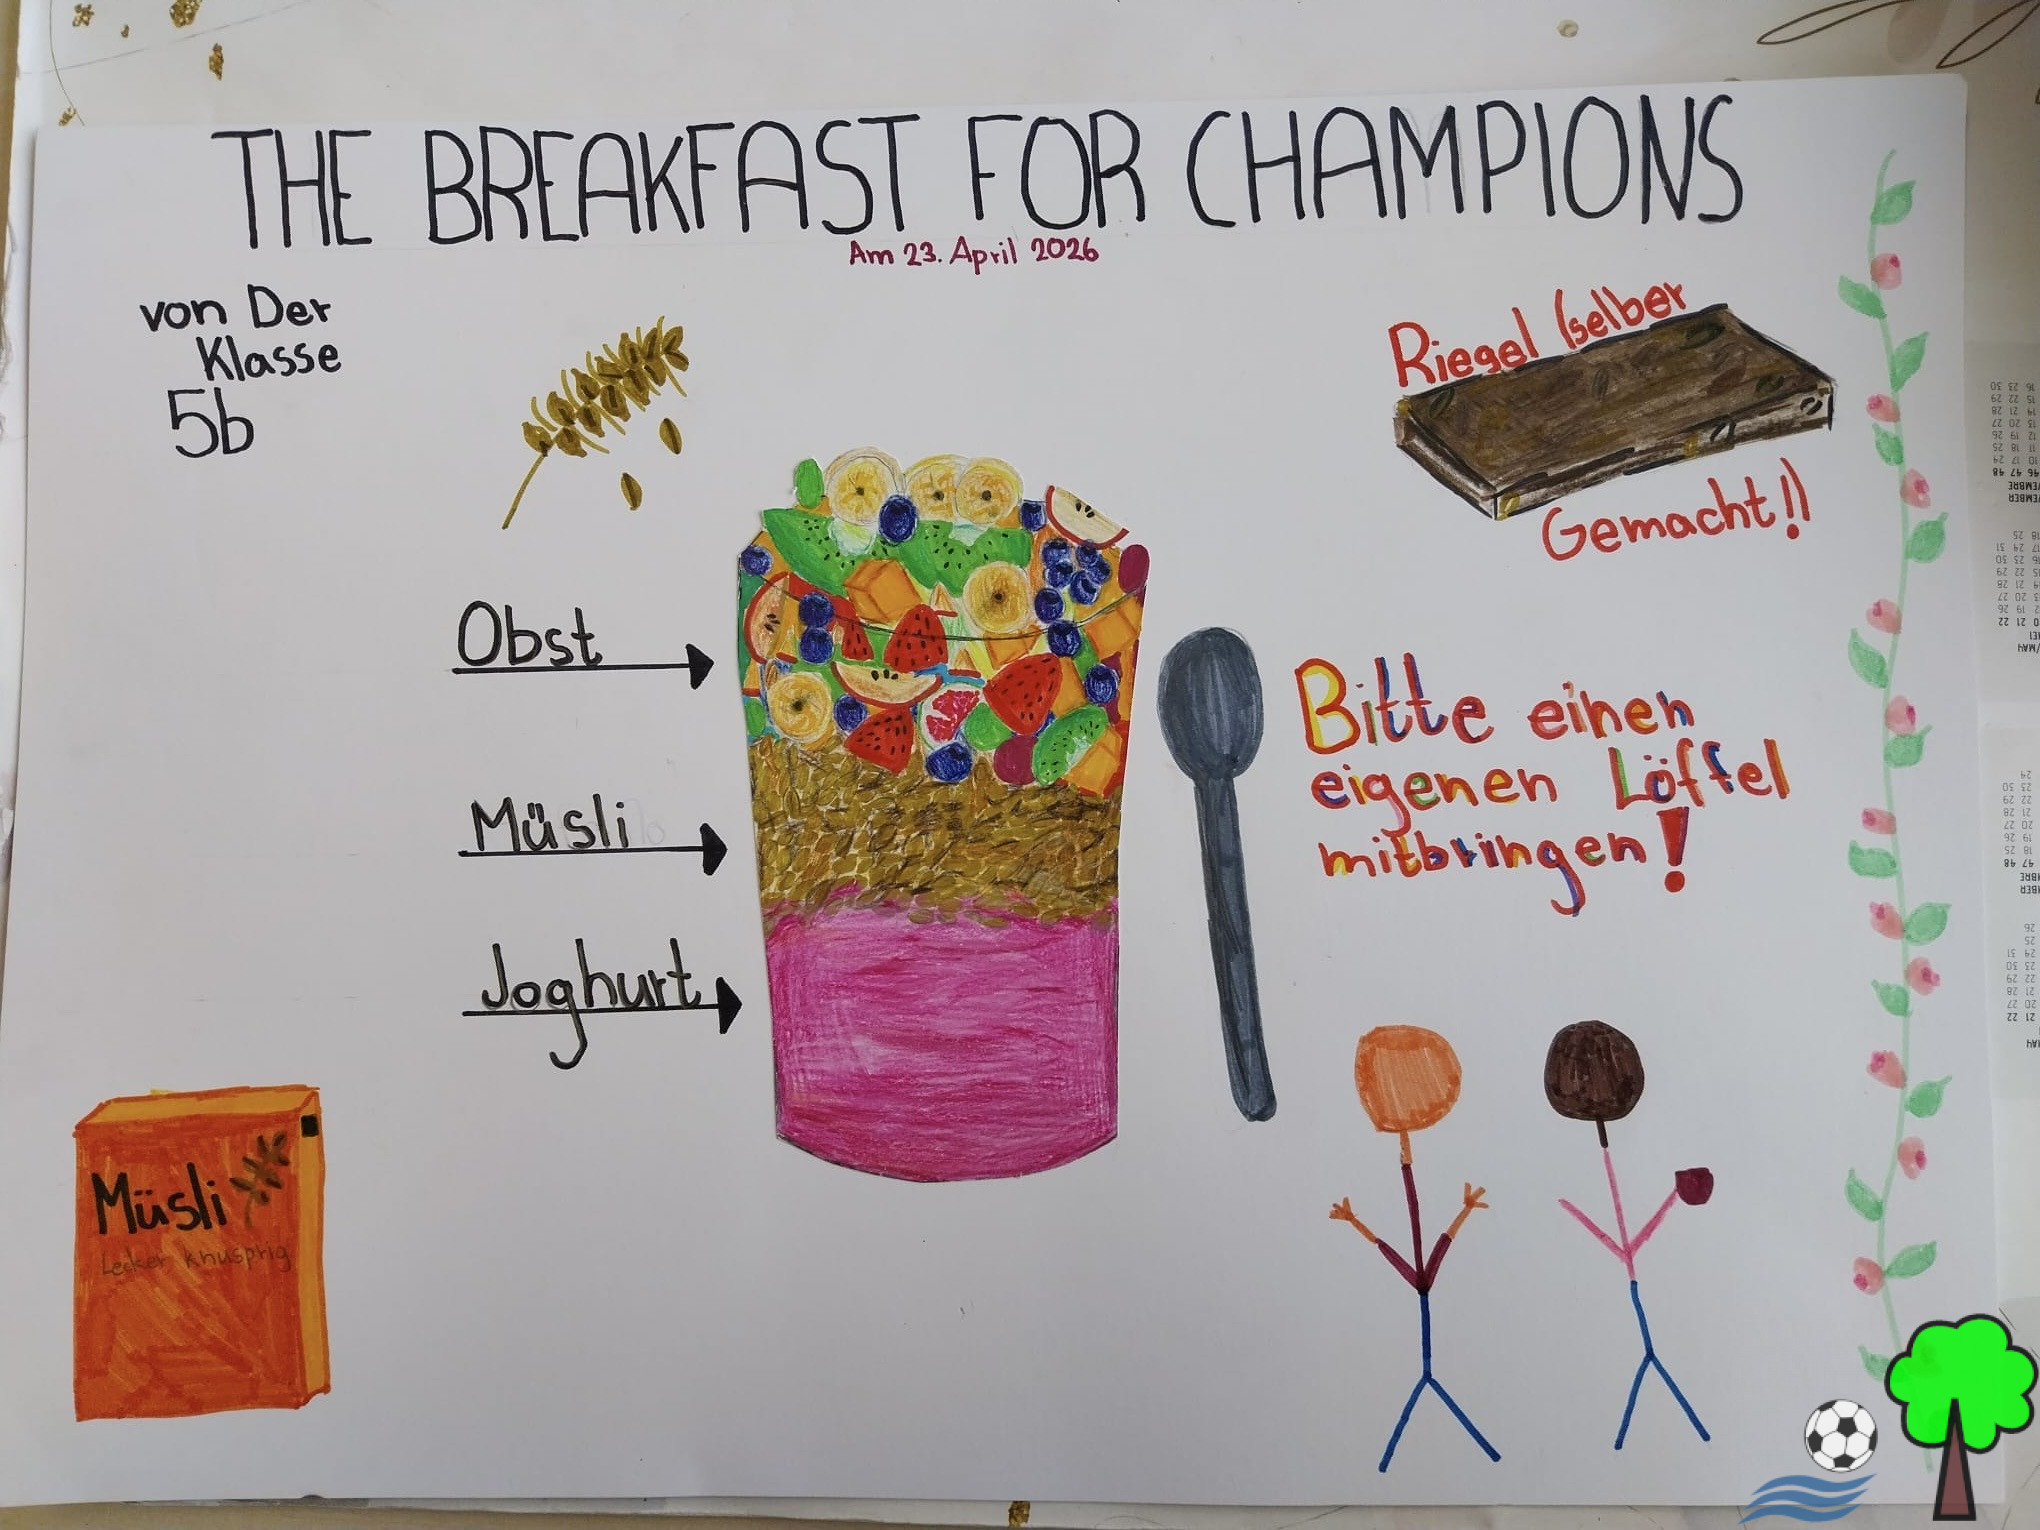 THE BREAKFAST FOR CHAMPIONS
Am 23. April 2026
von Der
Klasse
5b
Riegel (selber
Gemacht!)
Obst
Müsli
Joghurt
Bitte einen
eigenen Löffel
mitbringen!
Müsli
Lecker knusprig